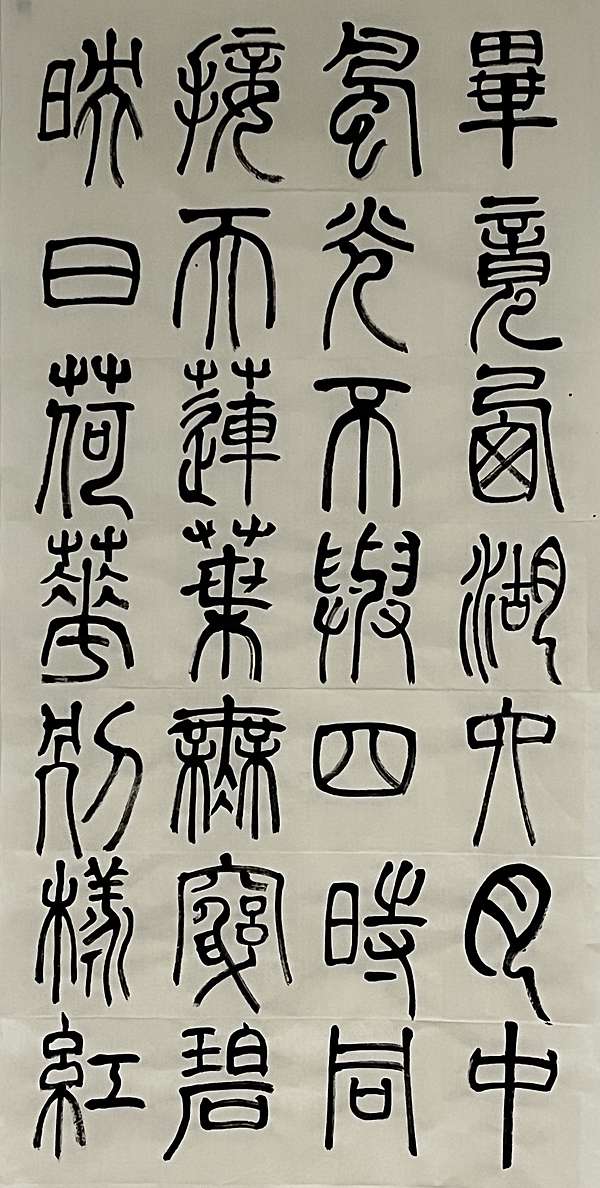 畢竟西湖六月中
風光不與四時同
接天蓮葉無窮碧
映日荷華別樣紅